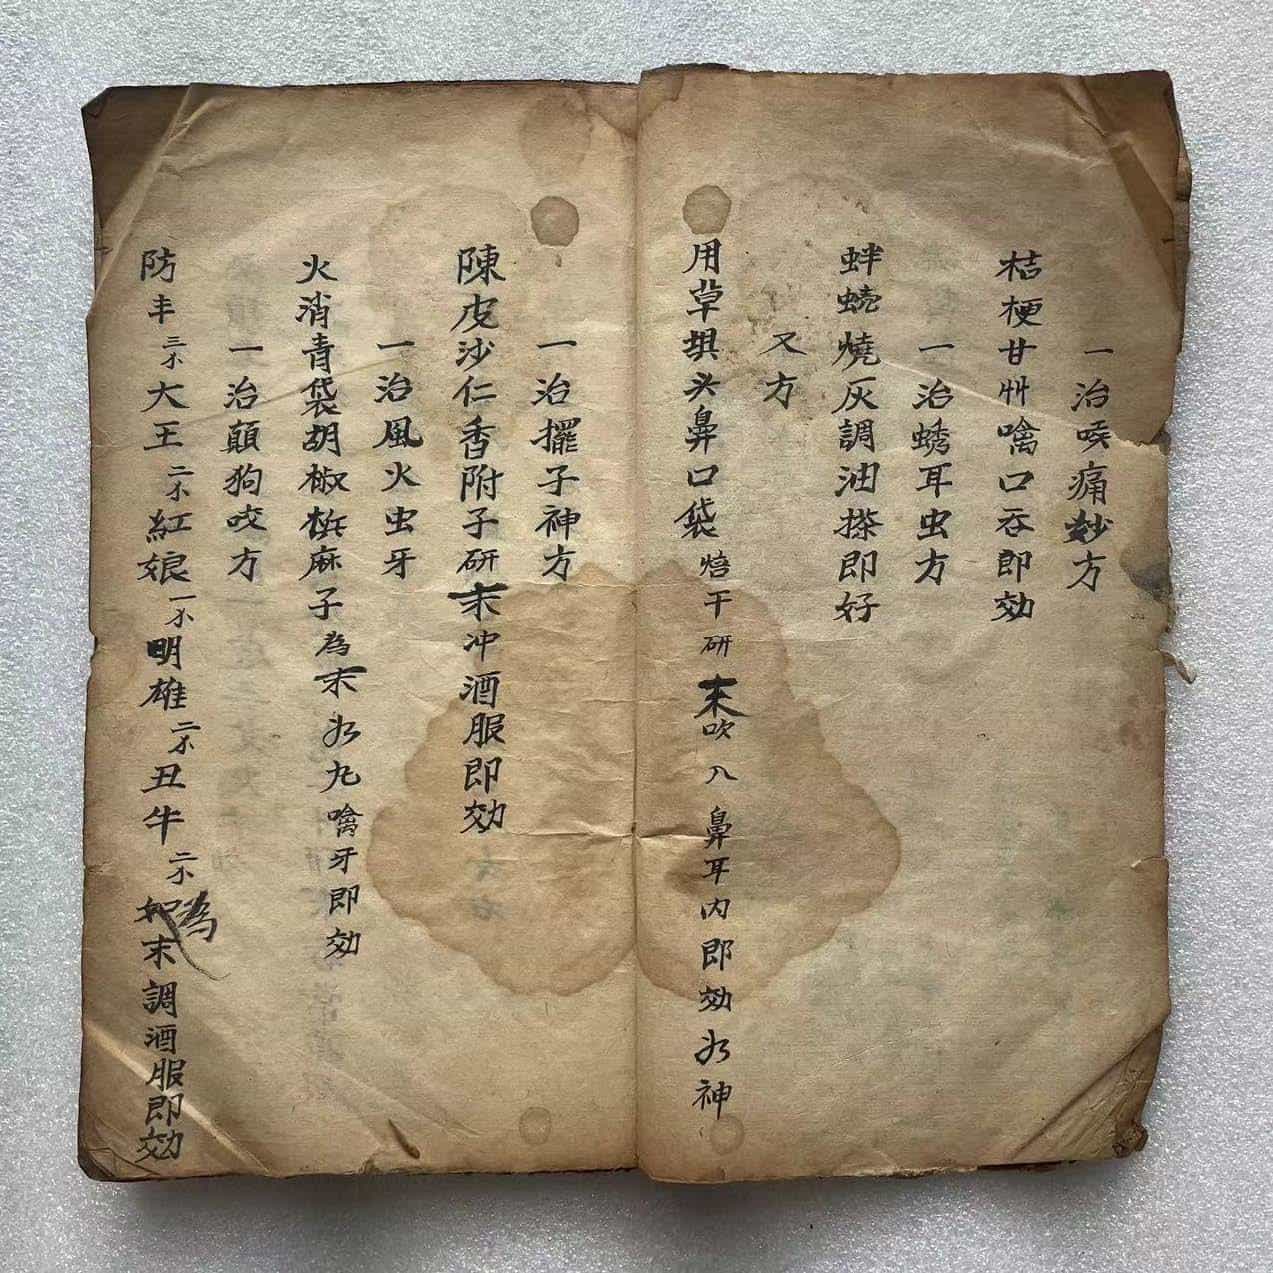 一治喉痛妙方
桔梗甘艸噙口吞即効
一治蟋耳虫方
蚌蟯燒灰調油搽即好
又方
用草埧头鼻口袋焙干研末吹入鼻耳内即効如神
一治擺子神方
陳皮沙仁香附子研末冲酒服即効
一治風火虫牙
火消青袋胡椒梹麻子為末為丸噙牙即効
一治顛狗咬方
防丰三个大王二个紅娘一个明雄二个丑牛二个為末調酒服即効